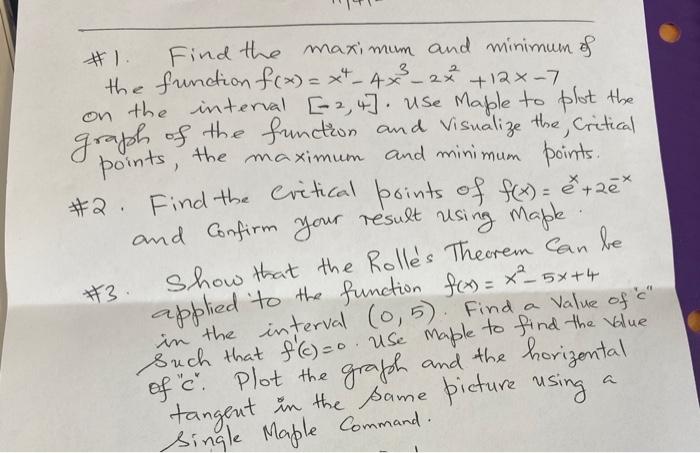 #1. Find the maximum and minimum of
the function f(x) = x⁴ - 4x³ - 2x² + 12x - 7
on the interval [-2, 4]. Use Maple to plot the
graph of the function and visualize the, Critical
points, the maximum and minimum points.
#2. Find the critical points of f(x) = eˣ + 2e⁻ˣ
and Confirm your result using Maple.
#3. Show that the Rolle's Theorem Can be
applied to the function f(x) = x² - 5x + 4
in the interval (0, 5). Find a Value of "c"
such that f'(c) = 0. Use Maple to find the Value
of "c". Plot the graph and the horizental
tangent in the same picture using a
single Maple Command.